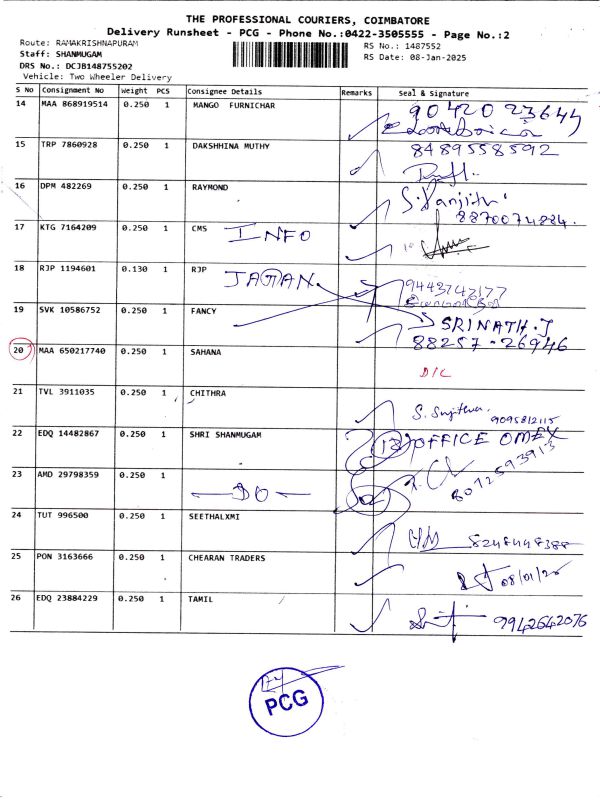 THE PROFESSIONAL COURIERS, COIMBATORE
Delivery Runsheet - PCG - Phone No.:0422-3505555 - Page No.:2
Route: RAMAKRISHNAPURAM
RS No.: 1487552
Staff: SHANMUGAM
RS Date: 08-Jan-2025
DRS No.: DCJB148755202
Vehicle: Two Wheeler Delivery
S No Consignment No/City Weight PCS Consignee Details Remarks Seal & Signature
14 MAA 868919514 0.250 1 MANGO FURNICHAR 9042023644
15 TRP 7860928 0.250 1 DAKSHHINA MUTHY 8489558592
16 DPM 482269 0.250 1 RAYMOND S. Sanjith
8870074884.
17 KTG 7164209 0.250 1 CMS INFO
18 RJP 1194601 0.130 1 RJP JAGAN 9443742177
19 SVK 10586752 0.250 1 FANCY SRINATH.J
88257-26946
20 MAA 650217740 0.250 1 SAHANA
D/C
21 TVL 3911035 0.250 1 CHITHRA S. Sujithra
9095812115
22 EDQ 14482867 0.250 1 SHRI SHANMUGAM OFFICE OMEX
23 AMD 29798359 0.250 1 — DO — 8072593913
24 TUT 996500 0.250 1 SEETHALXMI 8248448388
25 PON 3163666 0.250 1 CHEARAN TRADERS 08/01/25
26 EDQ 23884229 0.250 1 TAMIL 9942642076
PCG